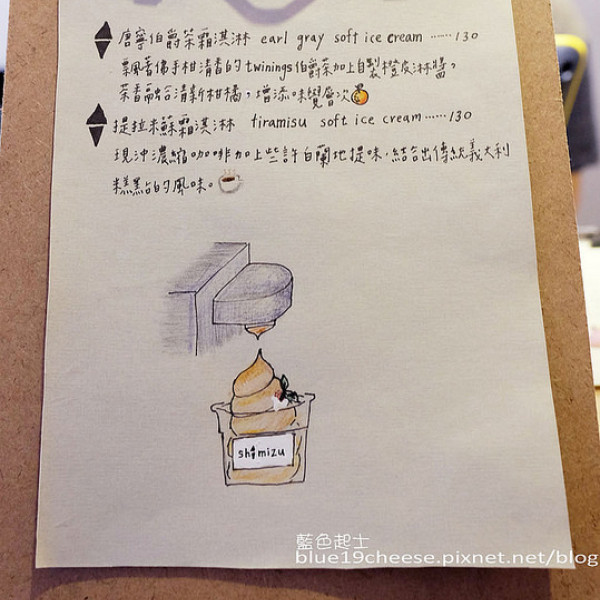 唐寧伯爵茶霜淇淋 earl gray soft ice cream ......130
飄著佛手柑清香的twinings伯爵茶加上自製橙皮淋醬，
茶香融合清新柑橘，增添味覺層次
提拉米蘇霜淇淋 tiramisu soft ice cream......130
現沖濃縮咖啡加上些許白蘭地提味，結合出傳統義大利
糕點的風味。
shimizu
藍色起士
blue19cheese.pixnet.net/blog